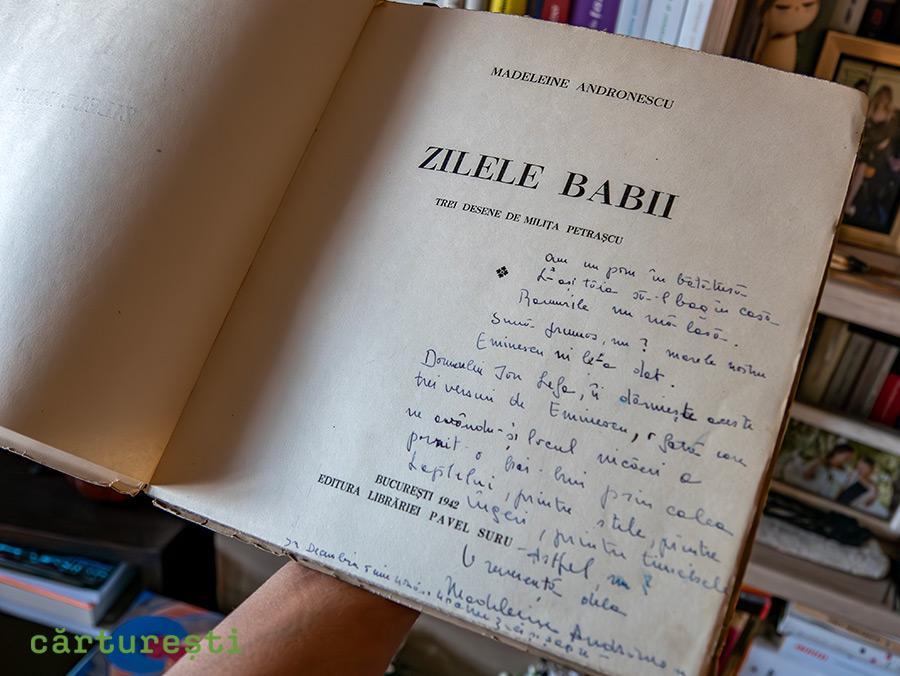 MADELEINE ANDRONESCU
ZILELE BABII
TREI DESENE DE MILIȚA PETRAȘCU
am un pom în bătătură
L-aș tăia să-l bag în casă
Ramurile nu mă lasă.
Sună frumos, nu? marele nostru
Eminescu ni le-a dat.
Domnului Ion Sefa, îi dăruiește aceste
trei versuri de Eminescu, o fată care
ne avându-și locul nicăeri a
pornit-o hai-hui prin calea
Laptelui, printre stele, printre
îngeri, printre
Astfel, nu?
O reverență dela
Madeleine Andronescu
BUCUREȘTI 1942
EDITURA LIBRĂRIEI PAVEL SURU
cărturești